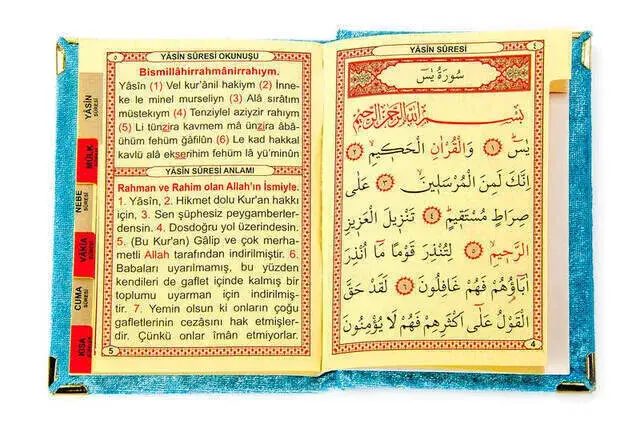 ٥ YÂSİN SÛRESİ OKUNUŞU
Bismillâhirrahmânirrahıym.
Yâsîn (1) Vel kur'ânil hakiym (2) İnne-
ke le minel murseliyn (3) Alâ sırâtım
müstekıym (4) Tenziylel aziyzir rahıym
(5) Li tünzira kavmem mâ ünzira âbâ-
ühüm fehüm ğâfilûn (6) Le kad hakkal
kavlü alâ ekserihim fehüm lâ yü'minûn
YÂSİN SÛRESİ ANLAMI
Rahman ve Rahim olan Allah'ın İsmiyle.
1. Yâsîn, 2. Hikmet dolu Kur'an hakkı
için, 3. Sen şüphesiz peygamberler-
densin. 4. Dosdoğru yol üzerindesin.
5. (Bu Kur'an) Gâlip ve çok merha-
metli Allah tarafından indirilmiştir. 6.
Babaları uyarılmamış, bu yüzden
kendileri de gaflet içinde kalmış bir
toplumu uyarman için indirilmiş-
tir. 7. Yemin olsun ki onların çoğu
gafletlerinin cezasını hak etmişler-
dir. Çünkü onlar îmân etmiyorlar.
5
YÂSİN
SÛRESİ
MÜLK
SÛRESİ
NEBE
SÛRESİ
VÂKIA
SÛRESİ
CUMA
SÛRESİ
KISA
SÛRELER
YÂSİN SÛRESİ ٤
سُورَةُ يٰسٓ
بِسْمِ اللّٰهِ الرَّحْمٰنِ الرَّحِيمِ
يٰسٓ ١ وَالْقُرْاٰنِ الْحَكِيمِ ٢
اِنَّكَ لَمِنَ الْمُرْسَلِينَ ٣ عَلٰى
صِرَاطٍ مُسْتَقِيمٍ ٤ تَنْزِيلَ الْعَزِيزِ
الرَّحِيمِ ٥ لِتُنْذِرَ قَوْمًا مَٓا اُنْذِرَ
اٰبَٓاؤُهُمْ فَهُمْ غَافِلُونَ ٦ لَقَدْ حَقَّ
الْقَوْلُ عَلٰٓى اَكْثَرِهِمْ فَهُمْ لَا يُؤْمِنُونَ
4